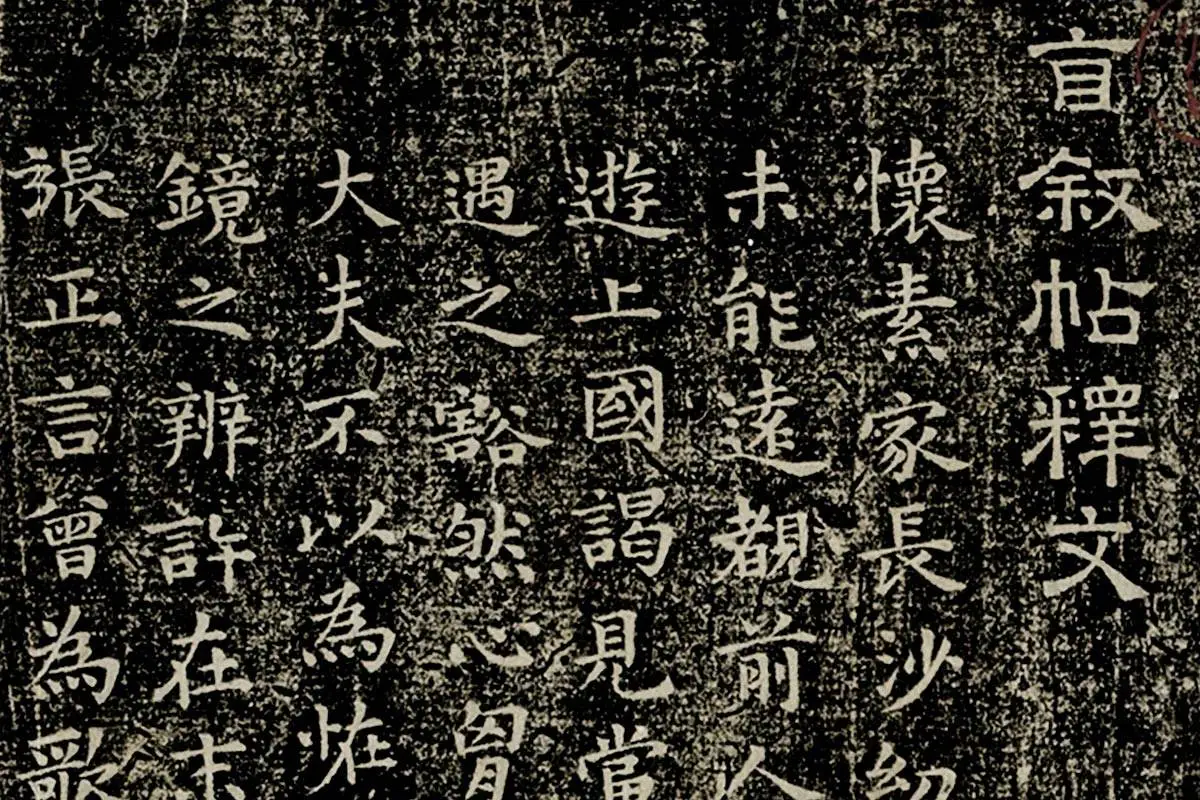 自敘帖釋文
懷素家長沙幼
未能遠覩前人
遊上國謁見當
遇之豁然心胷
大夫不以為恠
鏡之辨許在末
張正言曾為歌